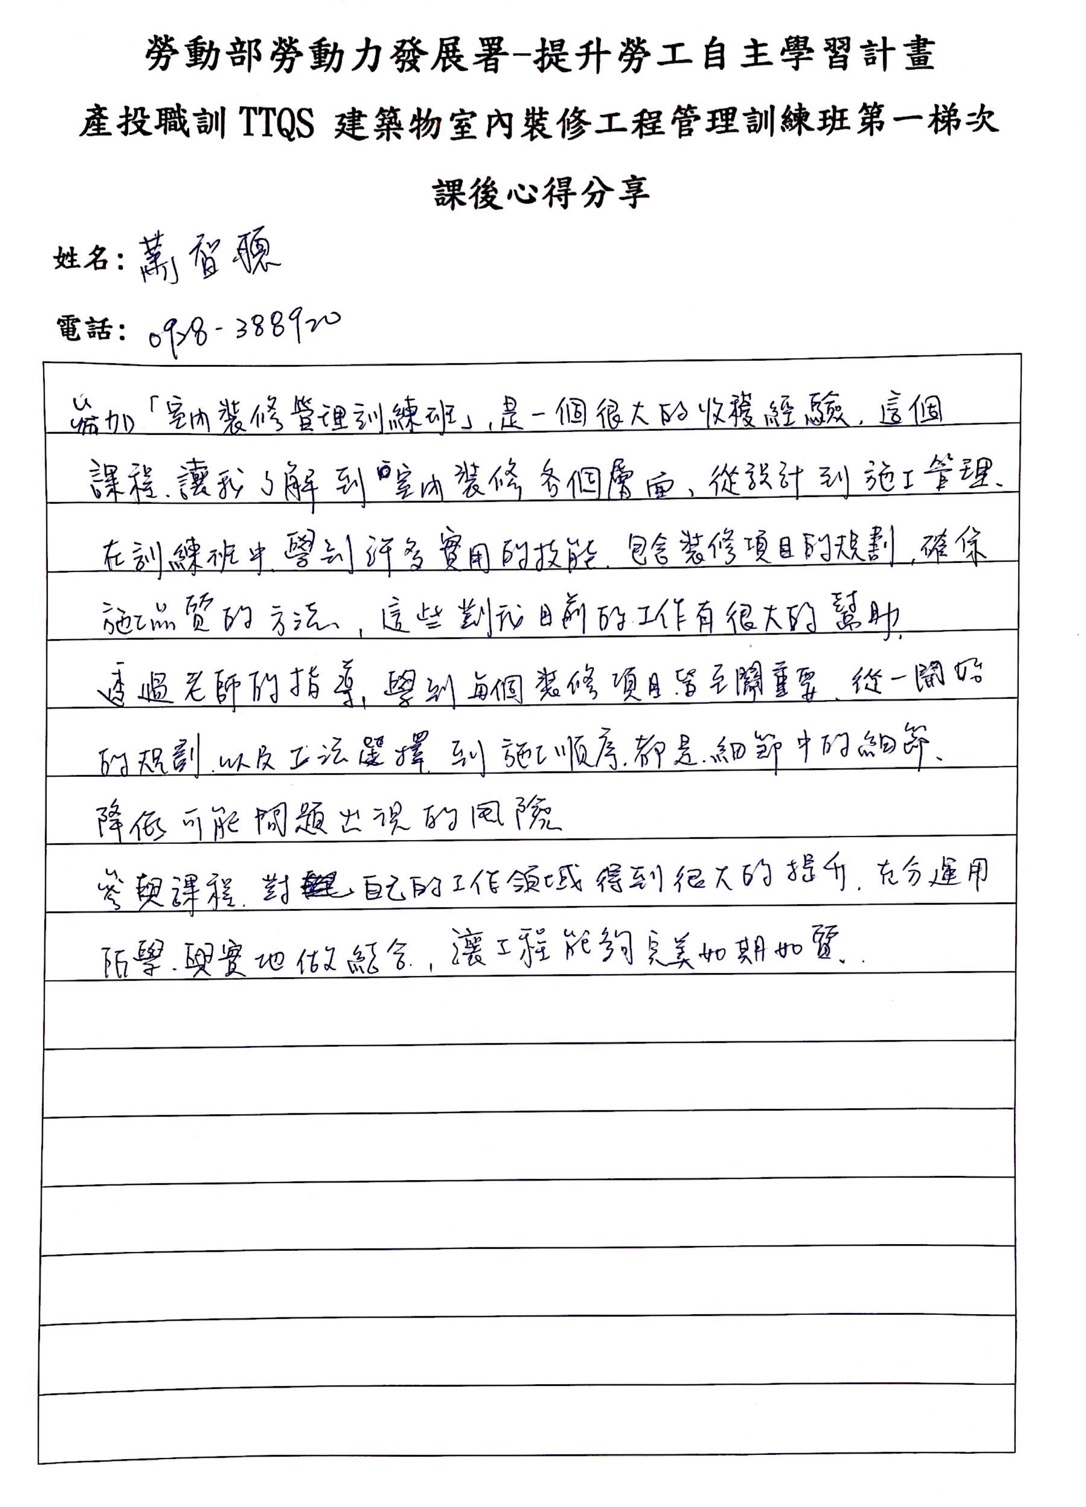 勞動部勞動力發展署-提升勞工自主學習計畫
產投職訓 TTQS 建築物室內裝修工程管理訓練班第一梯次
課後心得分享
姓名：蕭智聰
電話：0928-388920
參加「室內裝修管理訓練班」，是一個很大的收穫經驗，這個
課程、讓我了解到室內裝修各個層面、從設計到施工管理、
在訓練班中、學到許多實用的技能、包含裝修項目的規劃，確保
施工品質的方法、，這些對我目前的工作有很大的幫助，
透過老師的指導，學到每個裝修項目皆至關重要、從一開始
的規劃、以及工法選擇、到施工順序、都是、細節中的細節、
降低可能問題出現的風險
參與課程、對自己的工作領域得到很大的提升、充分運用
所學、與實地做結合，讓工程能夠完美如期如質、.